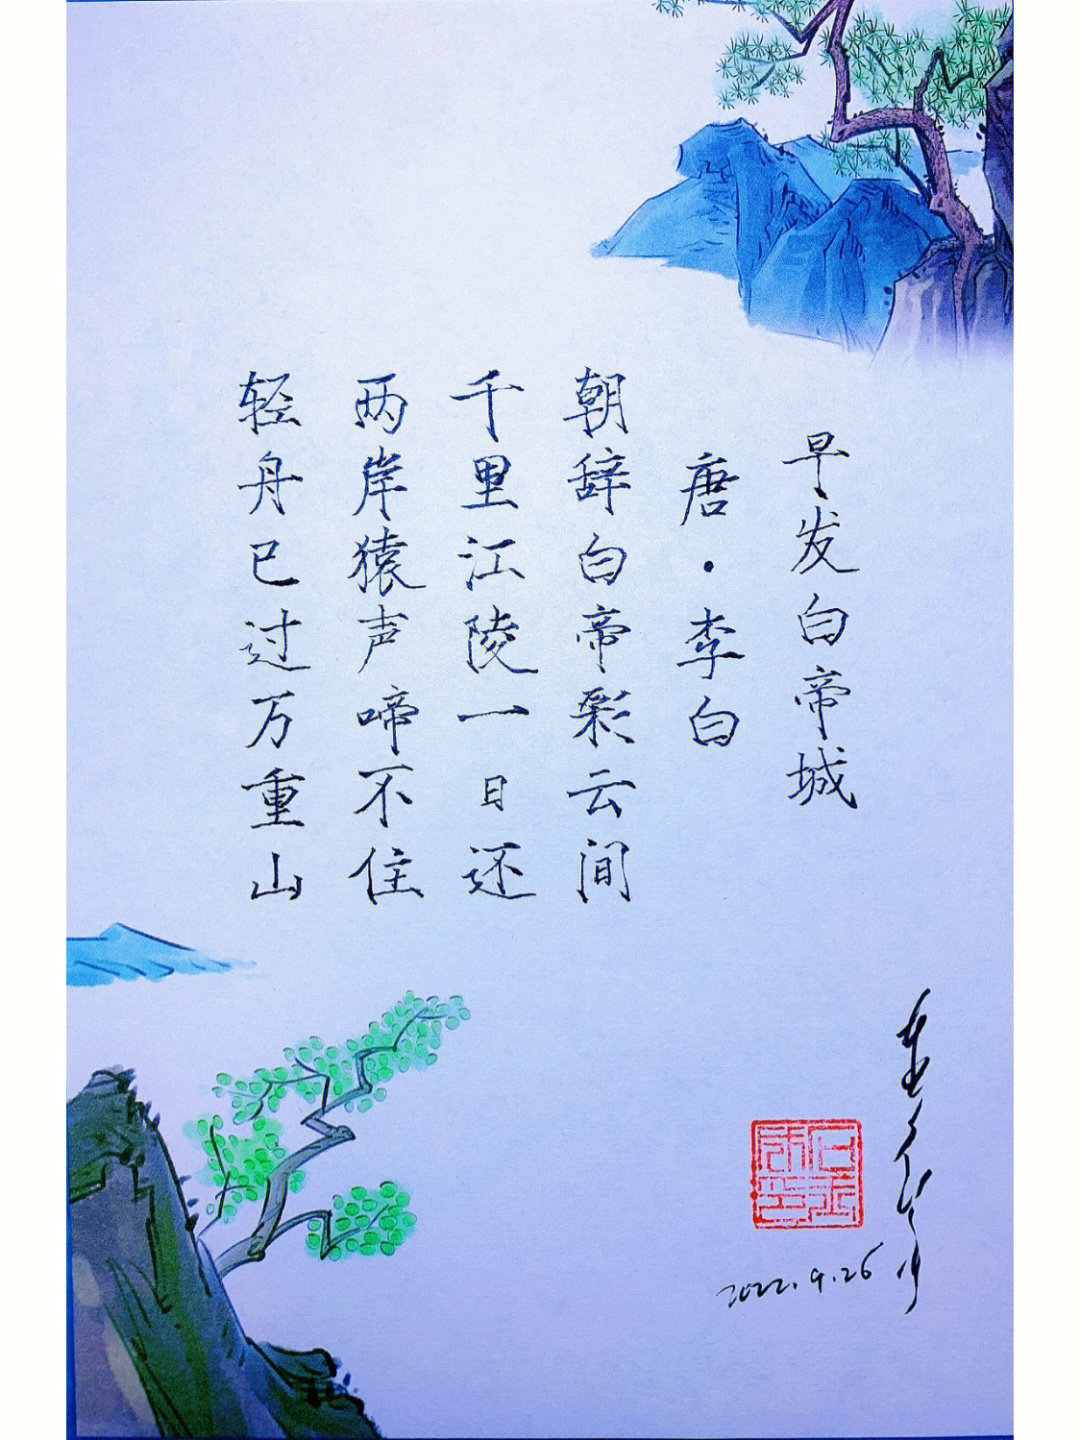 早发白帝城
唐·李白
朝辞白帝彩云间
千里江陵一日还
两岸猿声啼不住
轻舟已过万重山
2022.9.26